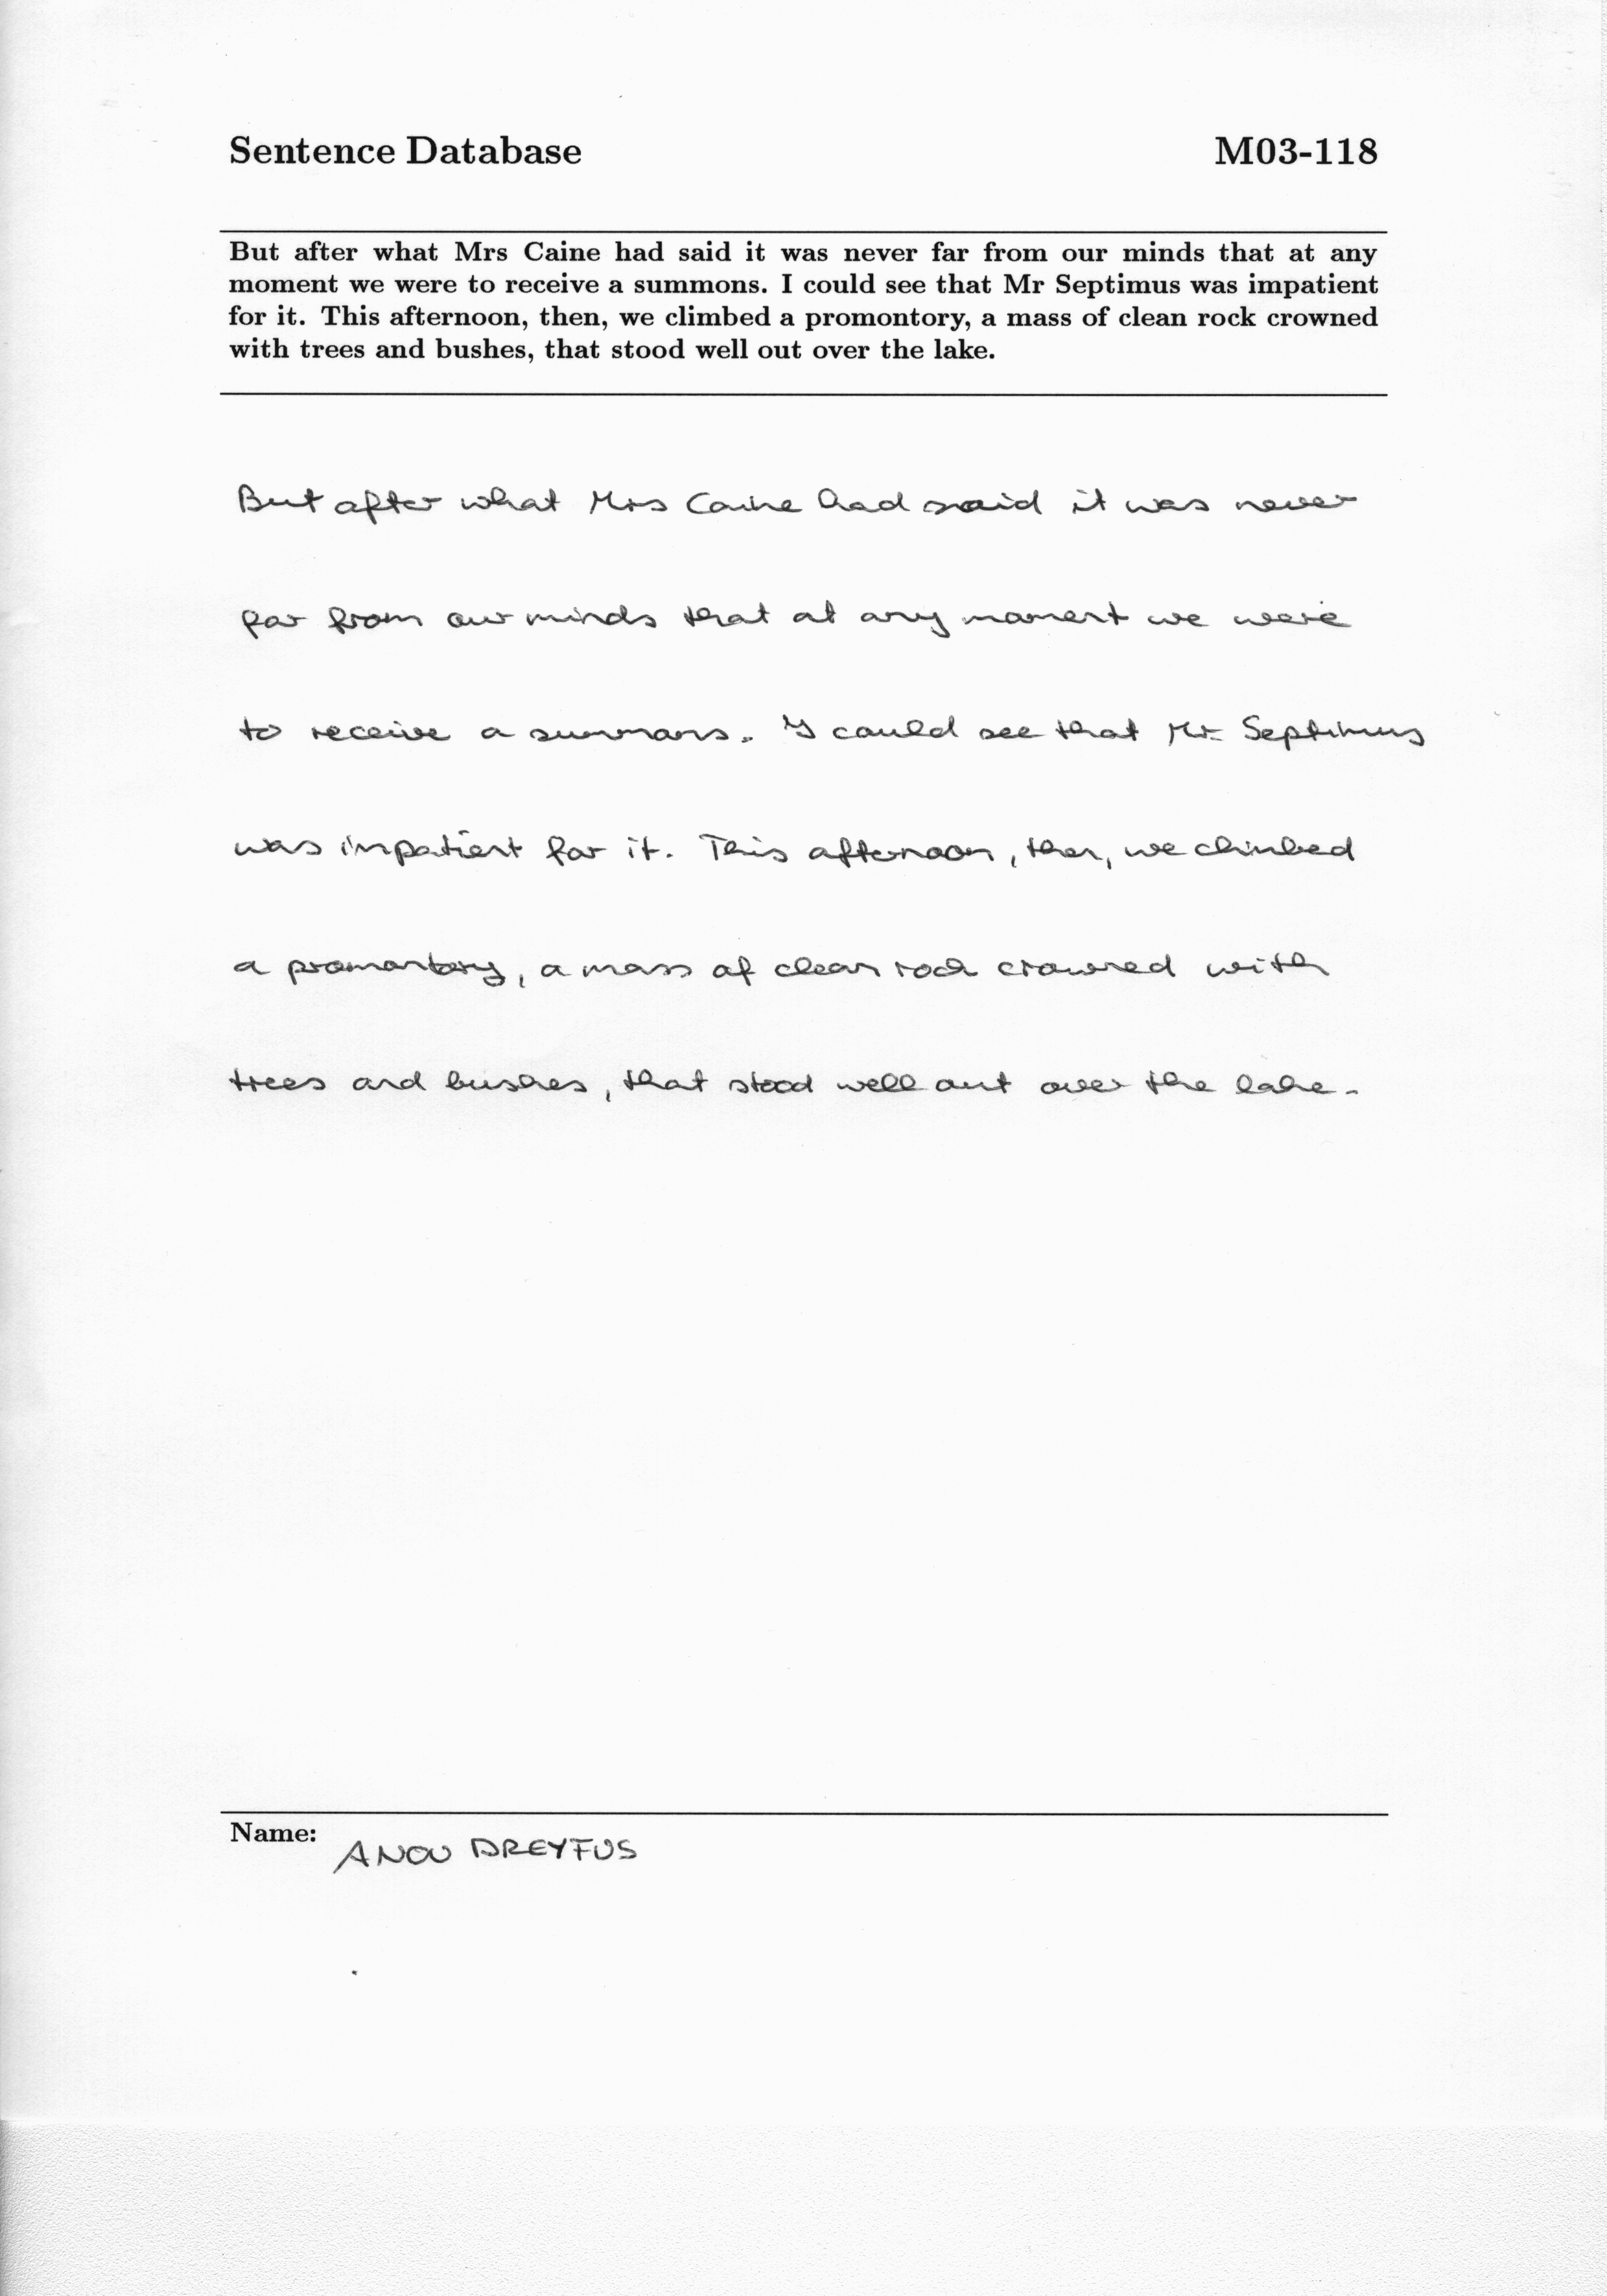 Sentence Database M03-118
But after what Mrs Caine had said it was never far from our minds that at any
moment we were to receive a summons. I could see that Mr Septimus was impatient
for it. This afternoon, then, we climbed a promontory, a mass of clean rock crowned
with trees and bushes, that stood well out over the lake.
But after what Mrs Caine had said it was never
far from our minds that at any moment we were
to receive a summons. I could see that Mr Septimus
was inpatient for it. This afternoon, then, we climbed
a promontory, a mass of clean rock crowned with
trees and bushes, that stood well out over the lake.
Name: ANOU DREYFUS